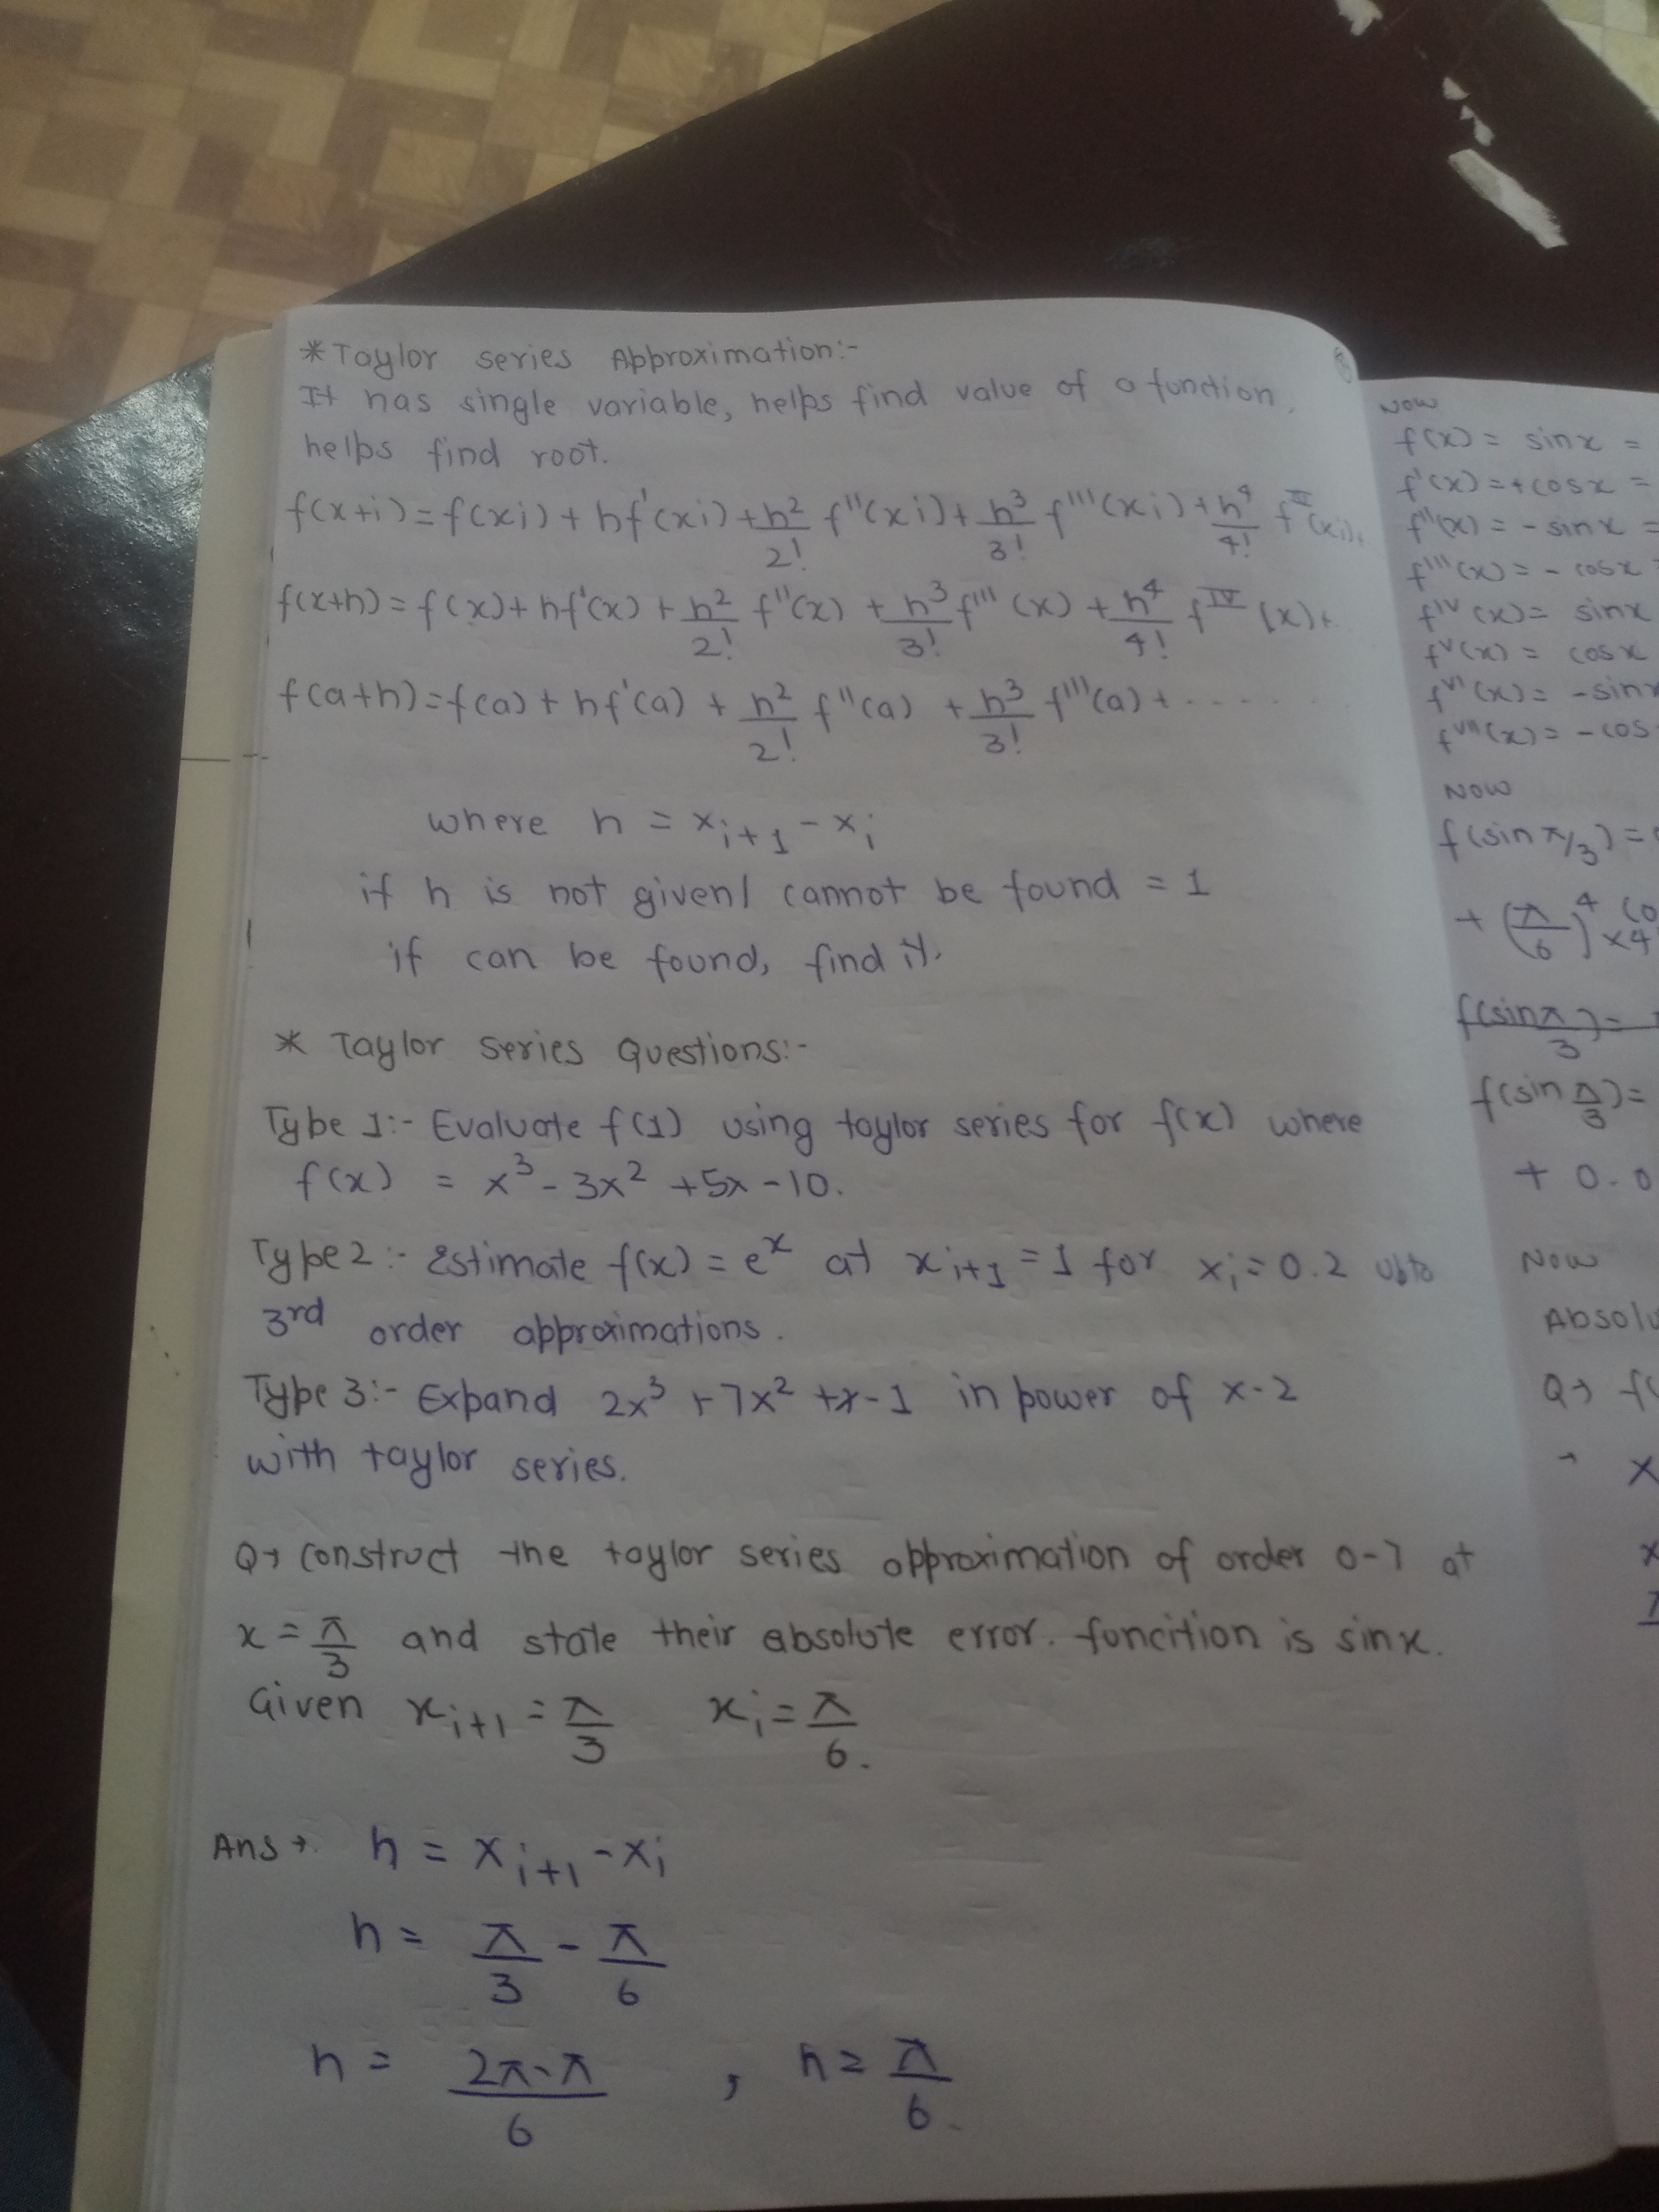 *Taylor series Approximation:-
It has single variable, helps find value of a function,
helps find root.
f(x+i) = f(xi) + hf'(xi) + h²/2! f''(xi) + h³/3! f'''(xi) + h⁴/4! f^IV(xi)+
f(x+h) = f(x) + hf'(x) + h²/2! f''(x) + h³/3! f'''(x) + h⁴/4! f^IV(x)+
f(a+h) = f(a) + hf'(a) + h²/2! f''(a) + h³/3! f'''(a) + ......
where h = x_{i+1} - x_i
if h is not given/ cannot be found = 1
if can be found, find it.
* Taylor Series Questions:-
Type 1:- Evaluate f(1) using taylor series for f(x) where
f(x) = x³ - 3x² + 5x - 10.
Type 2:- Estimate f(x) = e^x at x_{i+1} = 1 for x_i = 0.2 upto
3rd order approximations.
Type 3:- Expand 2x³ + 7x² + x - 1 in power of x-2
with taylor series.
Q→ Construct the taylor series approximation of order 0-7 at
x = π/3 and state their absolute error. funcition is sinx.
Given x_{i+1} = π/3 x_i = π/6.
Ans → h = x_{i+1} - x_i
h = π/3 - π/6
h = (2π-π)/6 , h = π/6.
Now
f(x) = sinx =
f'(x) = +cosx =
f''(x) = -sinx =
f'''(x) = -cosx
f^IV(x) = sinx
f^V(x) = cosx
f^VI(x) = -sinx
f^VII(x) = -cos
Now
f(sin π/3) =
+ (π/6)⁴ ×4
f(sin π/3) =
f(sin π/3) =
+ 0.0
Now
Absolu
Q→ f(
→ x
x